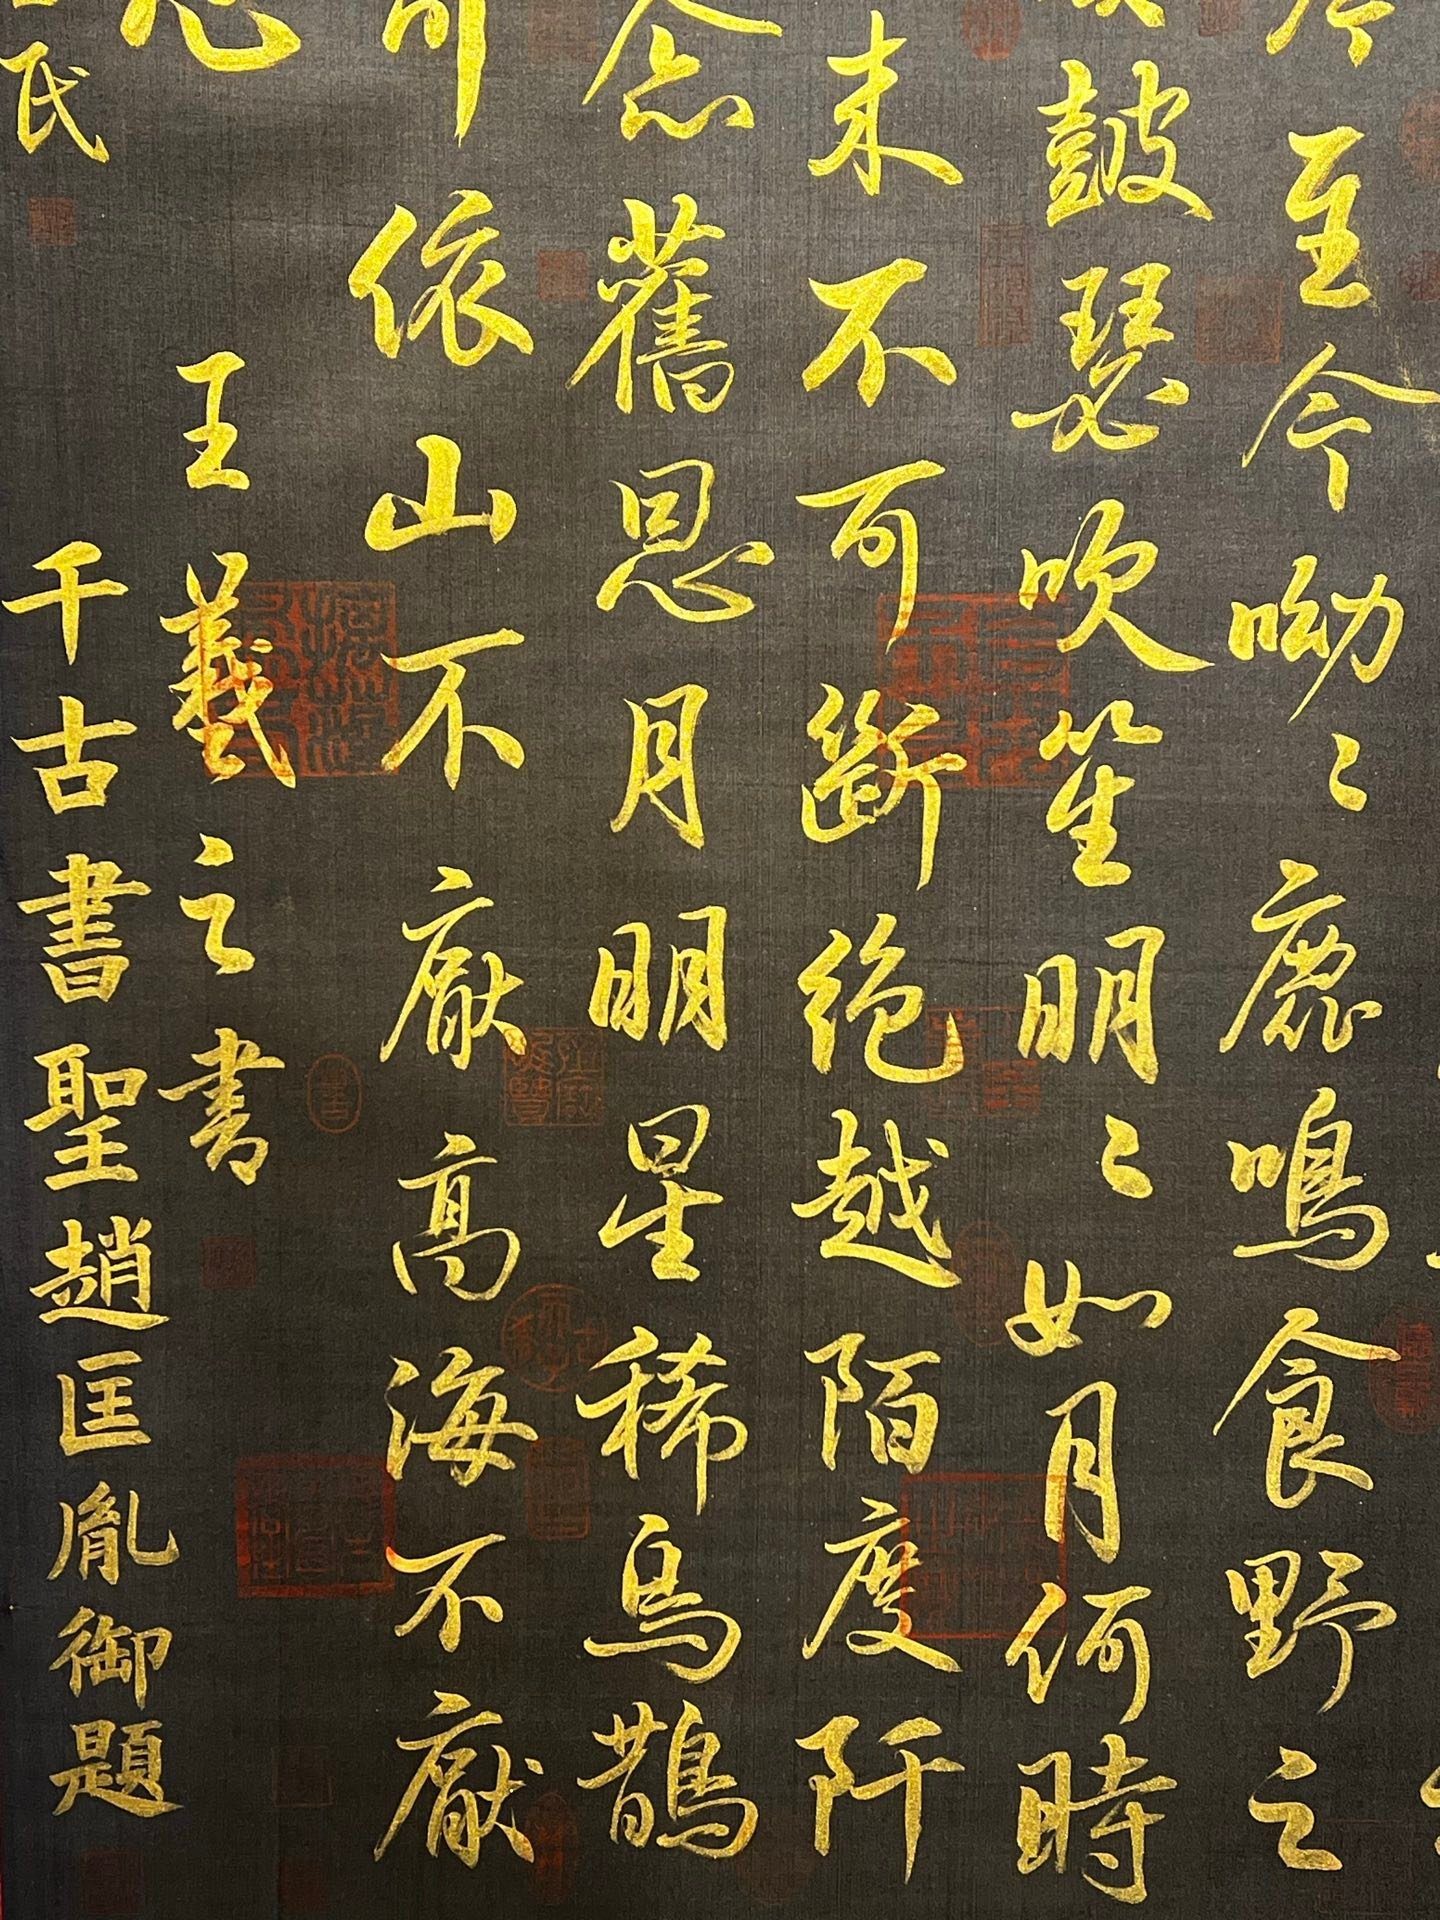 至今呦々鹿鳴食野之
皷瑟吹笙明々如月何時
来不可斷絶越陌度阡
念舊恩月明星稀烏鵲
可依山不厭高海不厭
心
王羲之書
氏
千古書聖趙匡胤御題